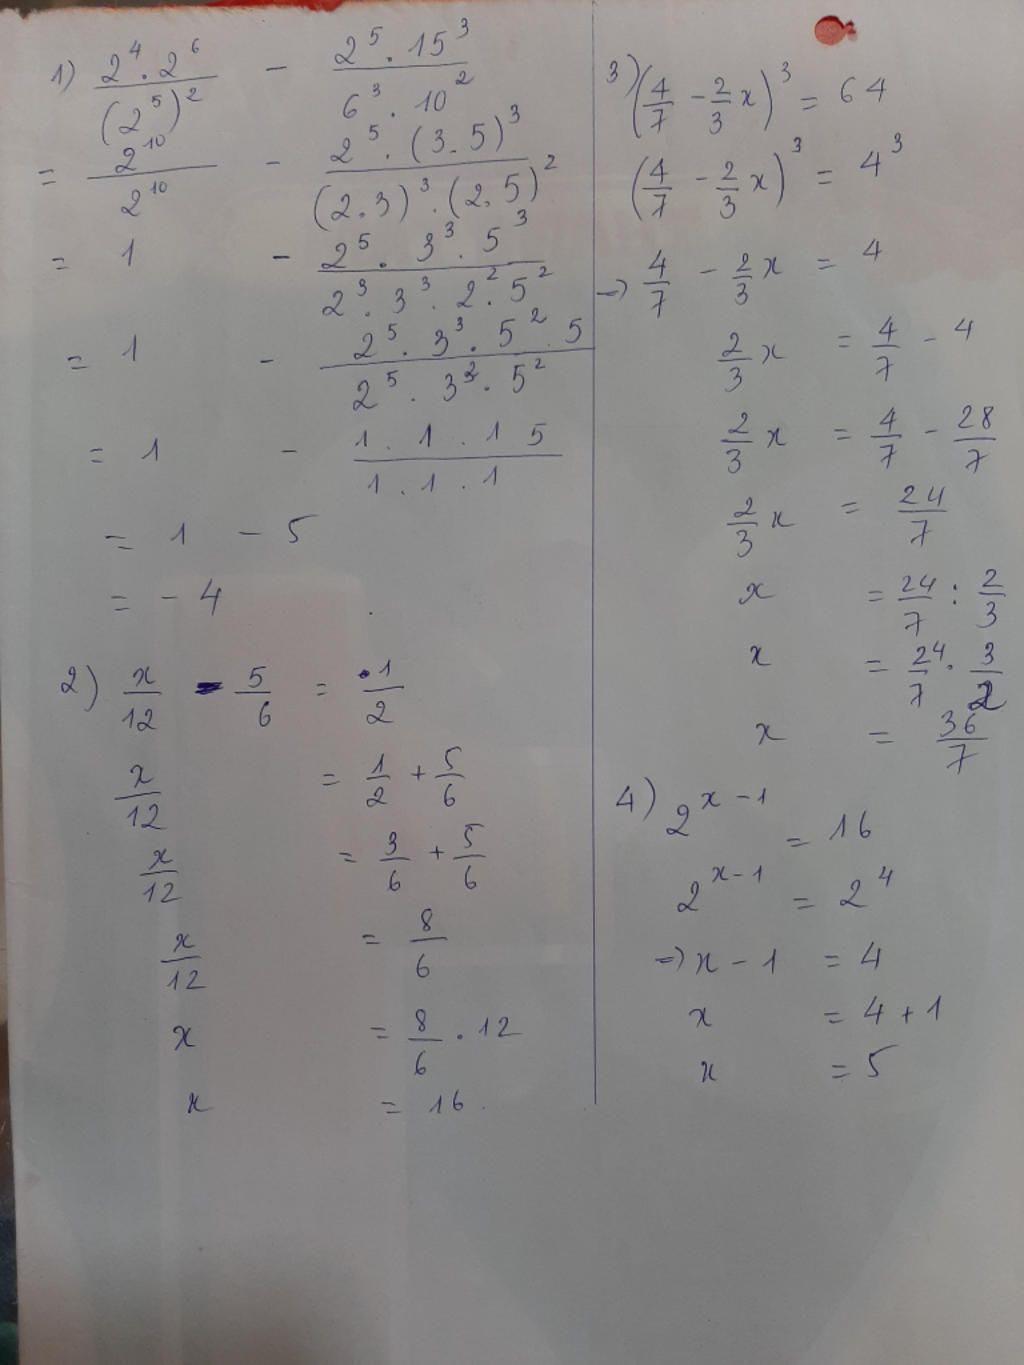 1) \frac{2^4 . 2^6}{(2^5)^2} - \frac{2^5 . 15^3}{6^3 . 10^2}
= \frac{2^{10}}{2^{10}} - \frac{2^5 . (3.5)^3}{(2.3)^3 . (2.5)^2}
= 1 - \frac{2^5 . 3^3 . 5^3}{2^3 . 3^3 . 2^2 . 5^2}
= 1 - \frac{2^5 . 3^3 . 5^2 . 5}{2^5 . 3^3 . 5^2}
= 1 - \frac{1 . 1 . 1 5}{1 . 1 . 1}
= 1 - 5
= - 4
2) \frac{x}{12} - \frac{5}{6} = \frac{1}{2}
\frac{x}{12} = \frac{1}{2} + \frac{5}{6}
\frac{x}{12} = \frac{3}{6} + \frac{5}{6}
\frac{x}{12} = \frac{8}{6}
x = \frac{8}{6} . 12
x = 16
3) (\frac{4}{7} - \frac{2}{3}x)^3 = 64
(\frac{4}{7} - \frac{2}{3}x)^3 = 4^3
=) \frac{4}{7} - \frac{2}{3}x = 4
\frac{2}{3}x = \frac{4}{7} - 4
\frac{2}{3}x = \frac{4}{7} - \frac{28}{7}
\frac{2}{3}x = \frac{24}{7}
x = \frac{24}{7} : \frac{2}{3}
x = \frac{24}{7} . \frac{3}{2}
x = \frac{36}{7}
4) 2^{x-1} = 16
2^{x-1} = 2^4
=) x - 1 = 4
x = 4 + 1
x = 5